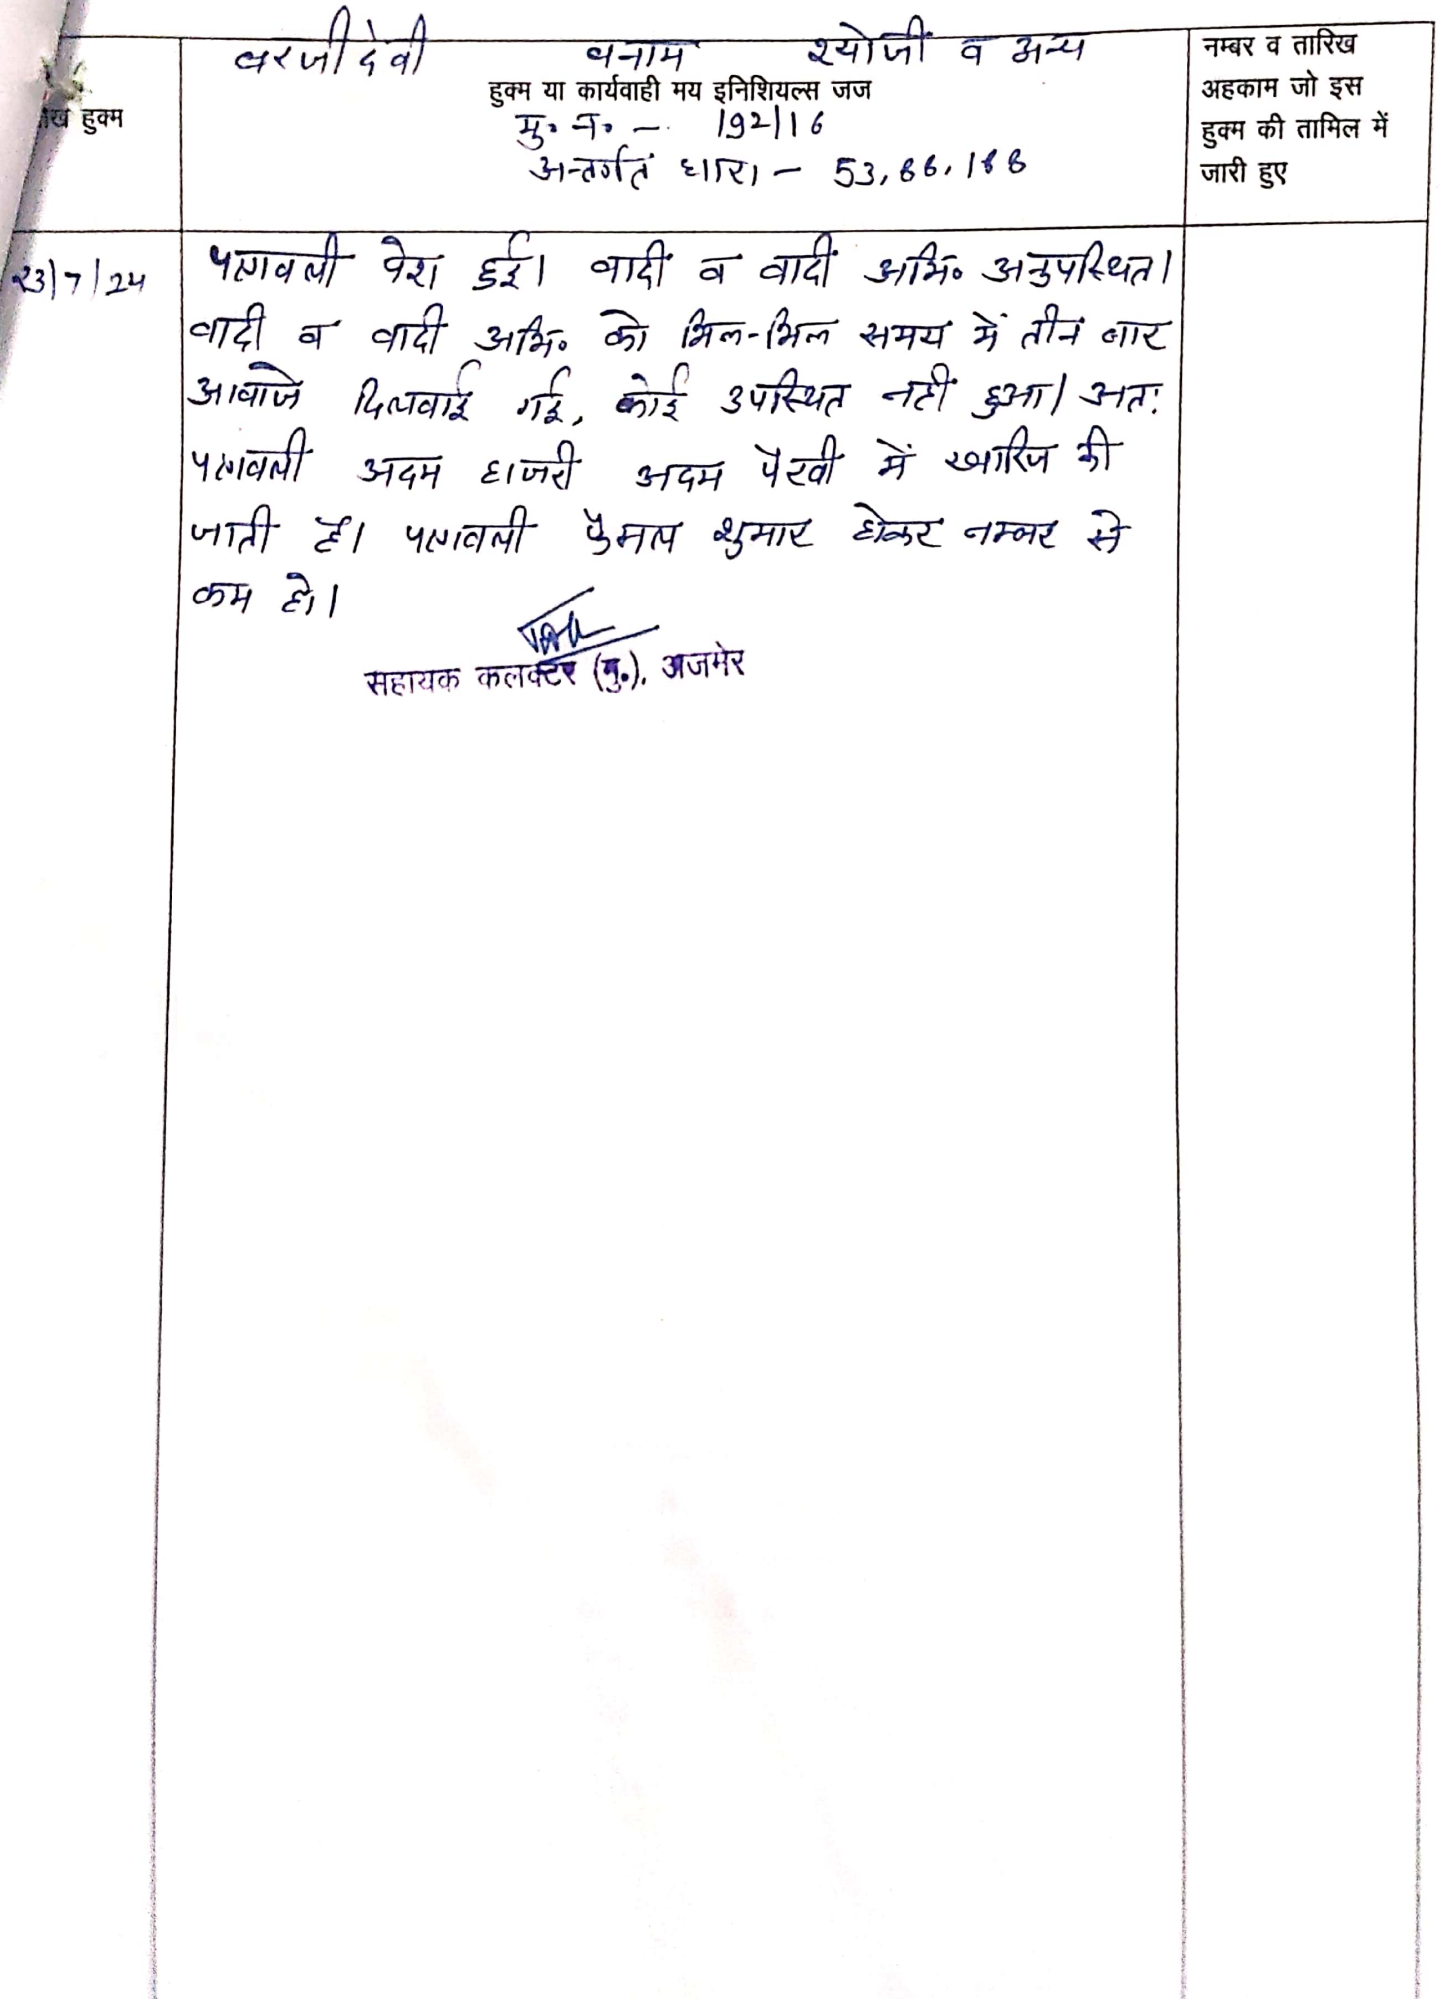 वरजी देवी बनाम श्योजी व अन्य
हुक्म या कार्यवाही मय इनिशियल्स जज
मु. न. - 192/16
अन्तर्गत धारा - 53, 88, 188
नम्बर व तारिख
अहकाम जो इस
हुक्म की तामिल में
जारी हुए
हुक्म
23/7/24
पत्रावली पेश हुई। वादी व वादी अभि० अनुपस्थित।
वादी व वादी अभि० को भिन्न-भिन्न समय में तीन बार
आवाजे दिलवाई गई, कोई उपस्थित नही हुआ। अतः
पत्रावली अदम हाजरी अदम पैरवी में खारिज की
जाती है। पत्रावली फैसल शुमार होकर नम्बर से
कम हो।
सहायक कलक्टर (मु.), अजमेर